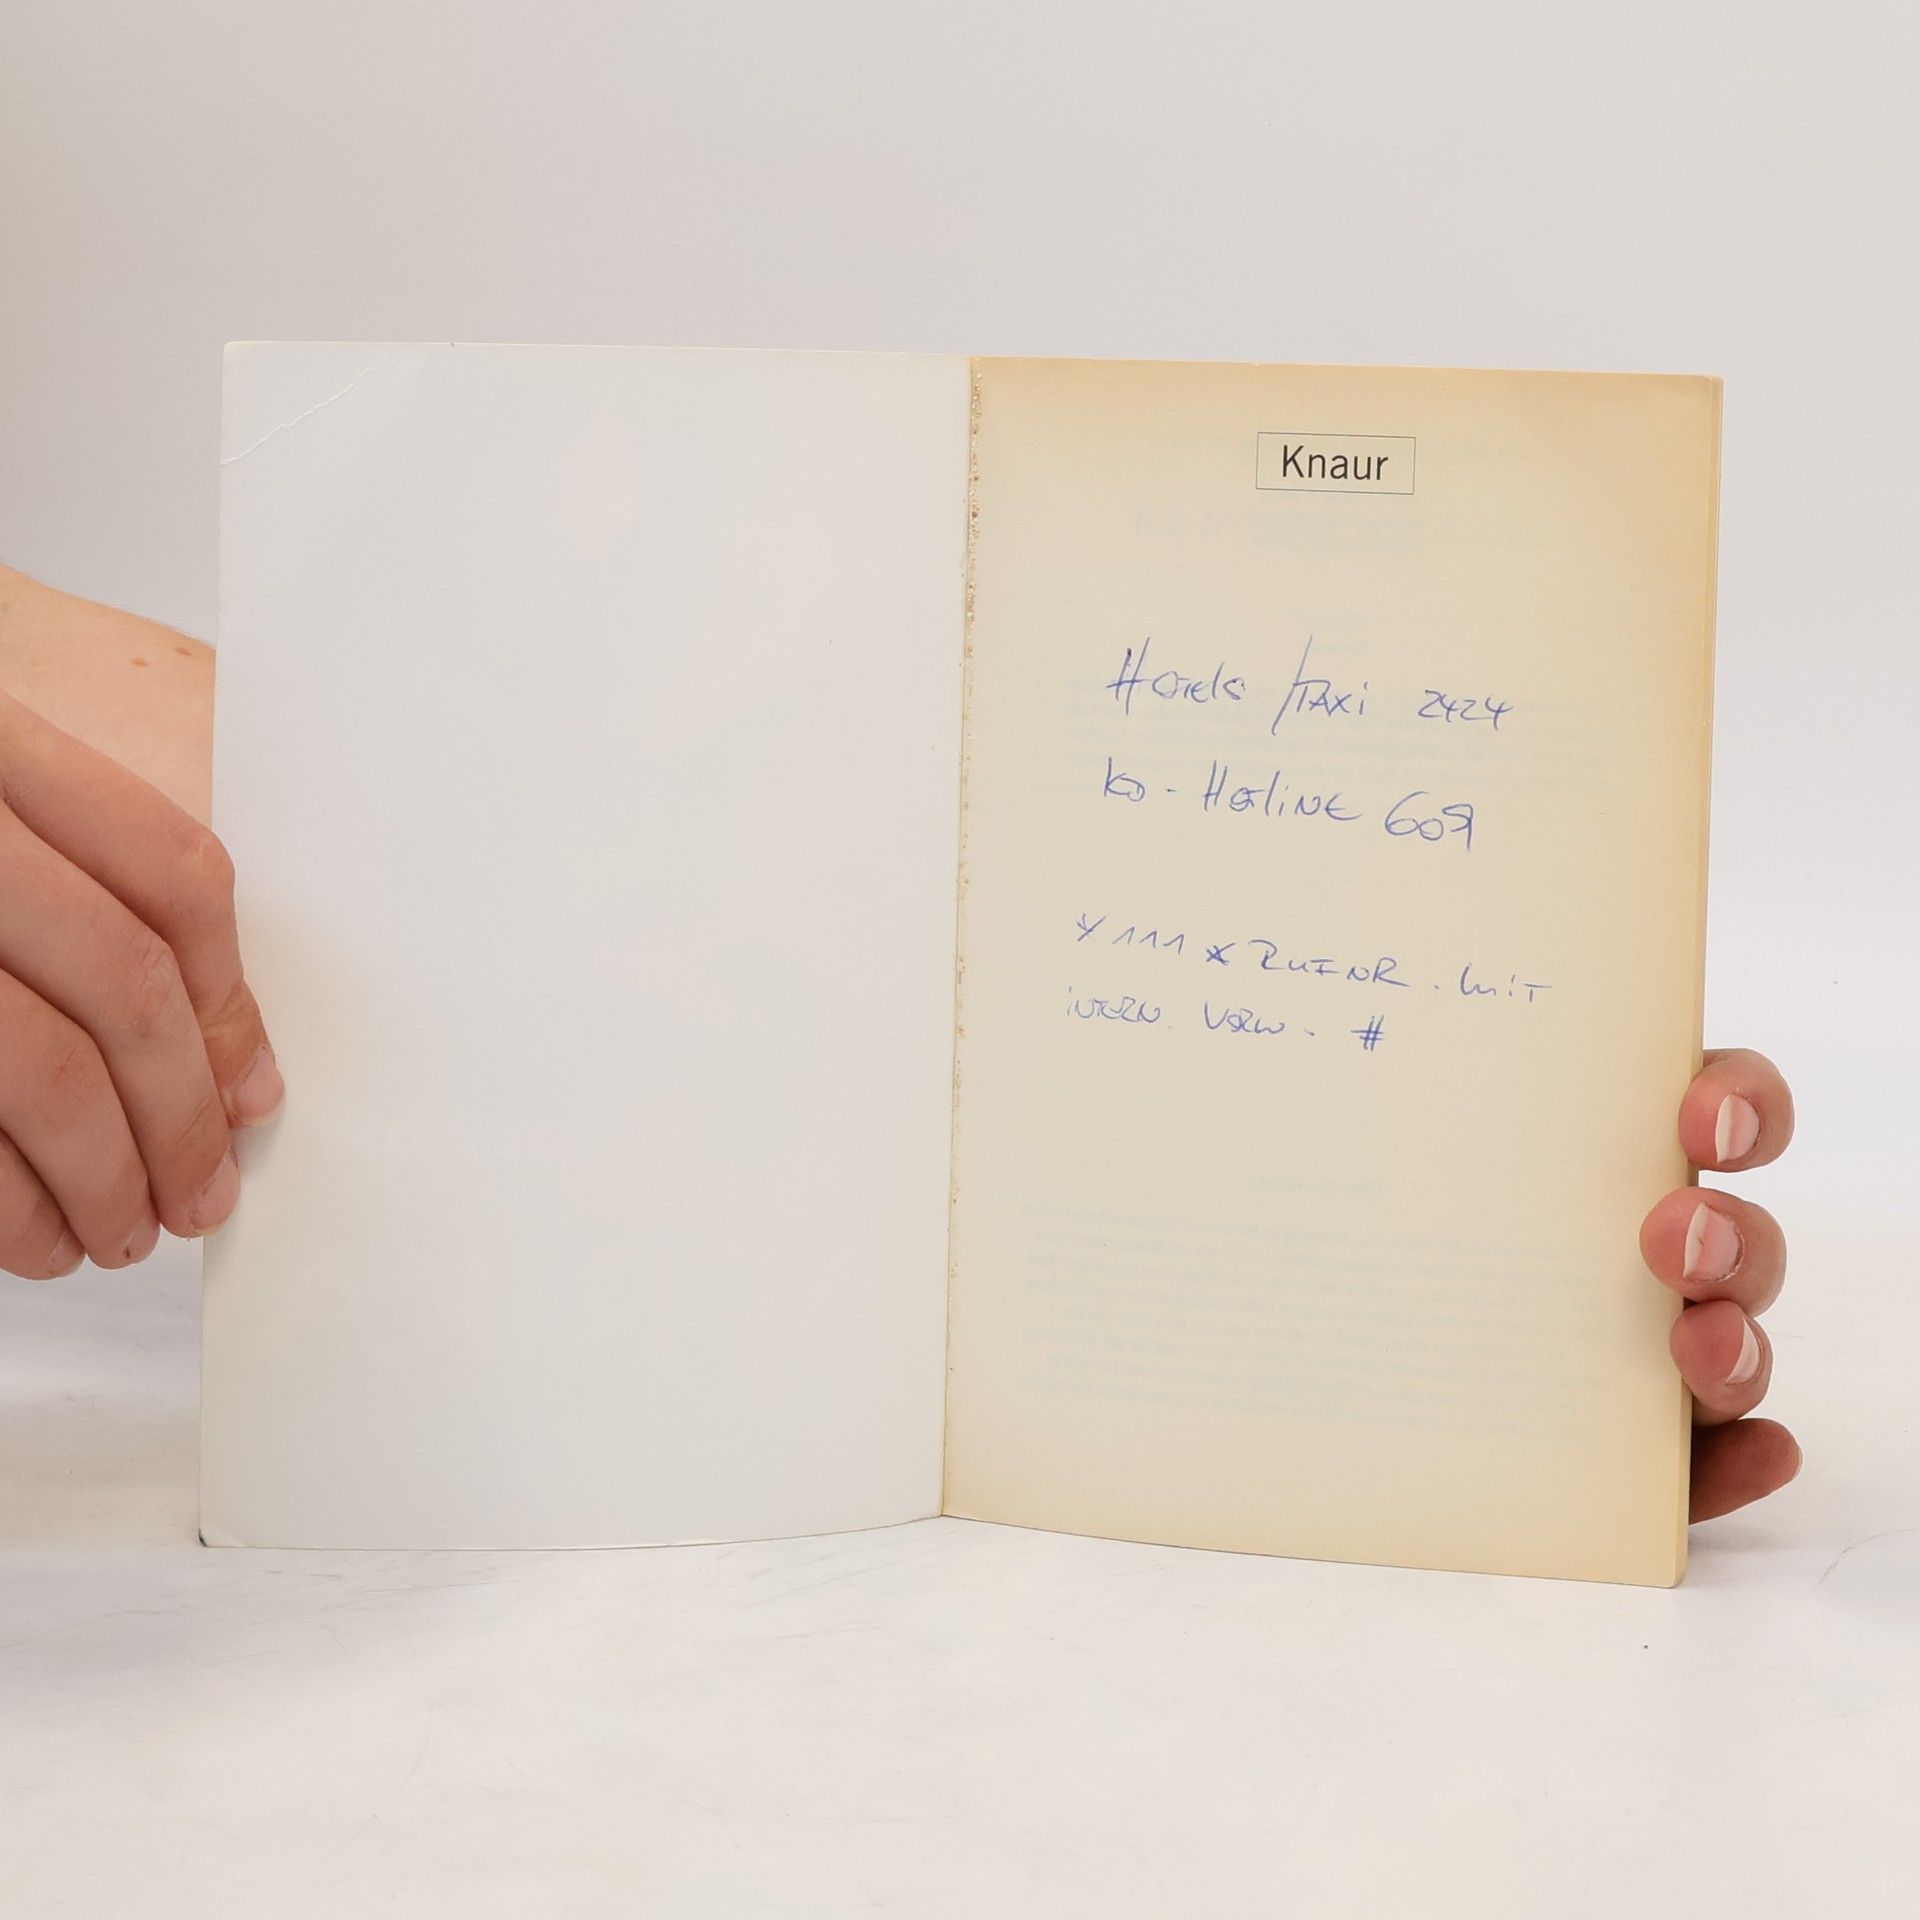 Knaur
Hotels /TAXi 2424
KD - Hotline 609
* 111 * RUFNR. mit
intern. Vorw. #